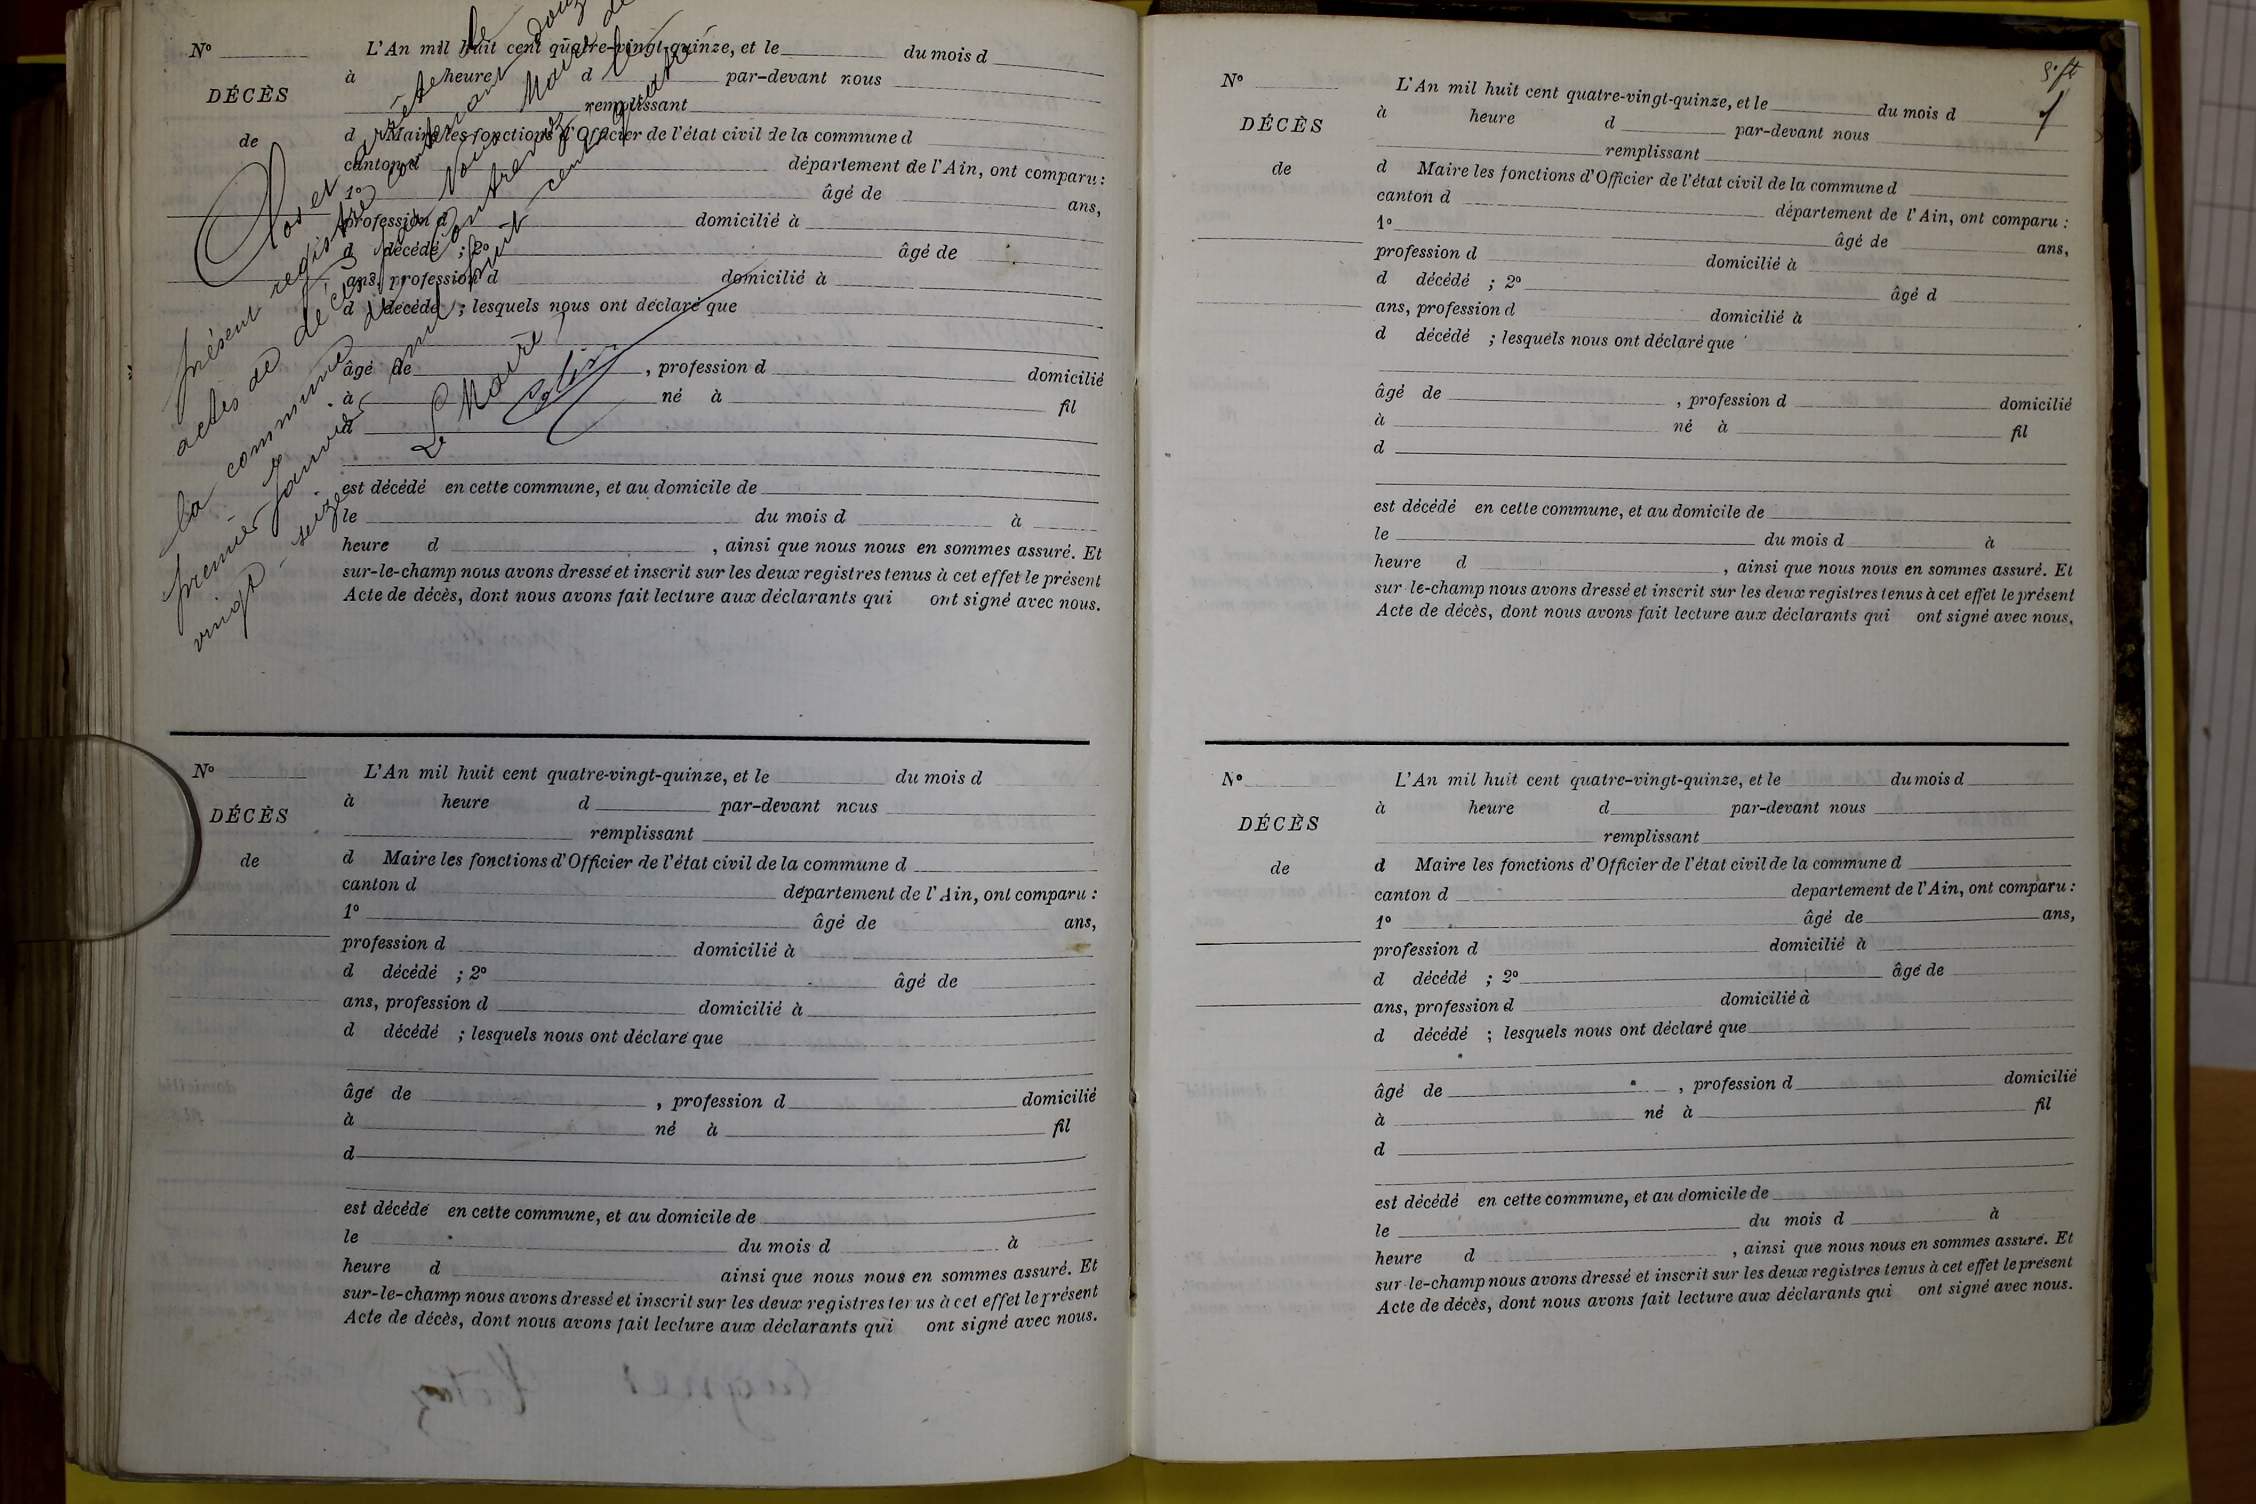 Nº
DÉCÈS
de
L'An mil huit cent quatre-vingt-quinze, et le du mois d
à heure d par-devant nous
remplissant
d Maire les fonctions d'Officier de l'état civil de la commune d
canton d département de l'Ain, ont comparu :
1º âgé de ans,
profession d domicilié à
d décédé ; 2º âgé de
ans, profession d domicilié à
d décédé ; lesquels nous ont déclaré que
âgé de , profession d domicilié
à né à fil
d
est décédé en cette commune, et au domicile de
le du mois d à
heure d , ainsi que nous nous en sommes assuré. Et
sur-le-champ nous avons dressé et inscrit sur les deux registres tenus à cet effet le présent
Acte de décès, dont nous avons fait lecture aux déclarants qui ont signé avec nous.
Clos et arrêté le
présent registre contenant douze
actes de décès par Nous Maire de
la commune de
le
premier janvier mil huit cent quatre
vingt-seize
Le Maire
Nº
DÉCÈS
de
L'An mil huit cent quatre-vingt-quinze, et le du mois d
à heure d par-devant nous
remplissant
d Maire les fonctions d'Officier de l'état civil de la commune d
canton d département de l'Ain, ont comparu :
1º âgé de ans,
profession d domicilié à
d décédé ; 2º âgé de
ans, profession d domicilié à
d décédé ; lesquels nous ont déclaré que
âgé de , profession d domicilié
à né à fil
d
est décédé en cette commune, et au domicile de
le du mois d à
heure d ainsi que nous nous en sommes assuré. Et
sur-le-champ nous avons dressé et inscrit sur les deux registres tenus à cet effet le présent
Acte de décès, dont nous avons fait lecture aux déclarants qui ont signé avec nous.
Nº
DÉCÈS
de
L'An mil huit cent quatre-vingt-quinze, et le du mois d
à heure d par-devant nous
remplissant
d Maire les fonctions d'Officier de l'état civil de la commune d
canton d département de l'Ain, ont comparu :
1º âgé de ans,
profession d domicilié à
d décédé ; 2º âgé d
ans, profession d domicilié à
d décédé ; lesquels nous ont déclaré que
âgé de , profession d domicilié
à né à fil
d
est décédé en cette commune, et au domicile de
le du mois d à
heure d , ainsi que nous nous en sommes assuré. Et
sur-le-champ nous avons dressé et inscrit sur les deux registres tenus à cet effet le présent
Acte de décès, dont nous avons fait lecture aux déclarants qui ont signé avec nous.
Nº
DÉCÈS
de
L'An mil huit cent quatre-vingt-quinze, et le du mois d
à heure d par-devant nous
remplissant
d Maire les fonctions d'Officier de l'état civil de la commune d
canton d département de l'Ain, ont comparu :
1º âgé de ans,
profession d domicilié à
d décédé ; 2º âgé de
ans, profession d domicilié à
d décédé ; lesquels nous ont déclaré que
âgé de , profession d domicilié
à né à fil
d
est décédé en cette commune, et au domicile de
le du mois d à
heure d , ainsi que nous nous en sommes assuré. Et
sur-le-champ nous avons dressé et inscrit sur les deux registres tenus à cet effet le présent
Acte de décès, dont nous avons fait lecture aux déclarants qui ont signé avec nous.